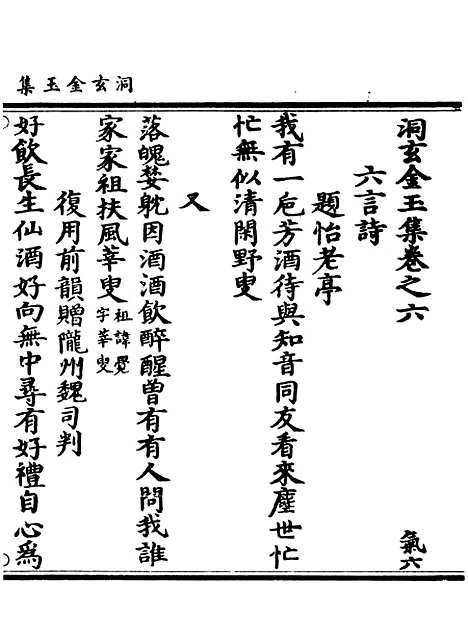 洞玄金玉集
洞玄金玉集卷之六 氣六
六言詩
題怡老亭
我有一巵芳酒待與知音同友看來塵世忙
忙無似清閑野叟
又
落魄婪躭因酒酒飲醉醒曾有有人問我誰
家家祖扶風莘叟祖諱覺字莘叟
復用前韻贈隴州魏司判
好飲長生仙酒好向無中尋有好禮自心爲